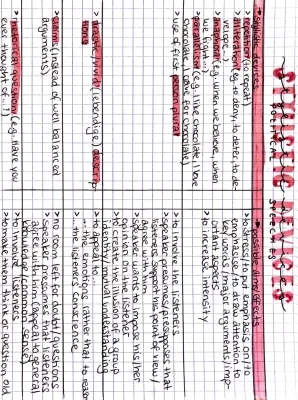 STYLISTIC DEVICES
political speeches
> stylistic devices
> repetition (to repeat)
> alliteration (e.g. to deny, to deter, to de-
> anaphora (e.g. when we believe, when
we fight...)
> parallelism (e.g. I like chocolate, I love
chocolate, I crave for chocolate)
> use of first person plural
> drastic/vivid (lebendige) descrip-
tions
> claims (instead of well balanced
arguments)
> rhetorical questions (e.g. Have you
ever thought of...?)
> possible aims/effects
> to stress/to put emphasis on/to
emphasise/to draw attention to
key words, message, arguments/imp-
ortant aspects
> to increase intensity
> to involve the listeners
> speaker presumes/presupposes that
listeners support his point of view/
agree with him
> speaker wants to impose his/her
opinion on the listener
> to create the illusion of a group
identity/mutual understanding
> to appeal to
... the emotions rather than to reason
... the listeners' conscience
> no room left for doubt/questions
> speaker presumes that listeners
agree with him (appeal to general
knowledge/common sense)
> to involve listeners
> to make them think or question old